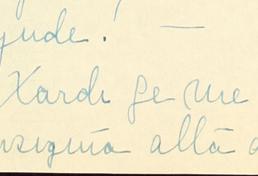 yude! —
Xardi ge me
nsignïa allã a